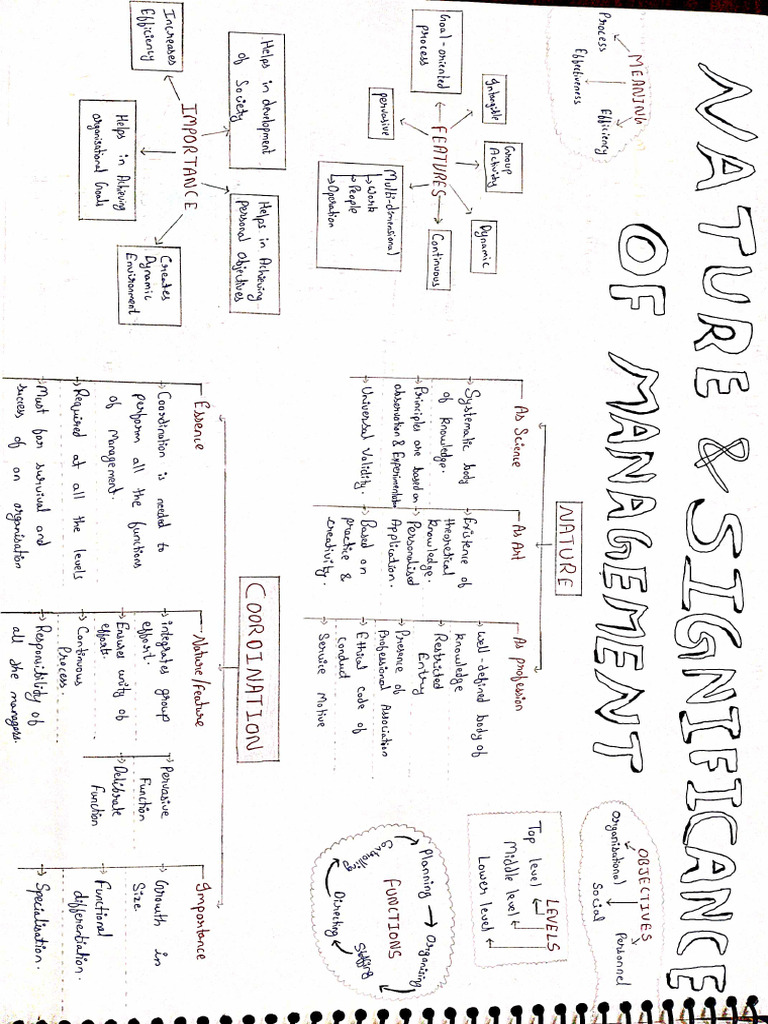 NATURE & SIGNIFICANCE
OF MANAGEMENT
MEANING
Process
Effectiveness
Efficiency
FEATURES
Goal-oriented
process
Intangible
Group
Activity
Dynamic
pervasive
Multi-dimensional
Work
People
Operation
Continuous
IMPORTANCE
Increases
Efficiency
Helps in development
of Society
Helps in Achieving
personal Objectives
Helps in Achieving
organisational Goals
Creates
Dynamic
Environment
NATURE
As Science
Systematic body
of knowledge.
Principles are based on
observation & Experimentation
Universal Validity.
As Art
Existence of
theoretical
knowledge.
Personalised
Application.
Based on
practice &
creativity.
As profession
Well-defined body of
knowledge
Restricted
Entry
Presence of
Professional Association
Ethical code of
conduct
Service Motive
OBJECTIVES
Organisational
Social
Personnel
LEVELS
Top level
Middle level
Lower level
FUNCTIONS
Planning
Organizing
Staffing
Directing
Controlling
COORDINATION
Essence
Coordination is needed to
perform all the functions
of management.
Required at all the levels
Must for survival and
success of an organisation
Nature/Feature
integrates group
effort.
Ensures unity of
effort.
Continuous
Process.
Responsibility of
all the managers.
Pervasive
Function
Delibrate
Function
Importance
Growth in
Size
Functional
differentiation.
Specialisation.